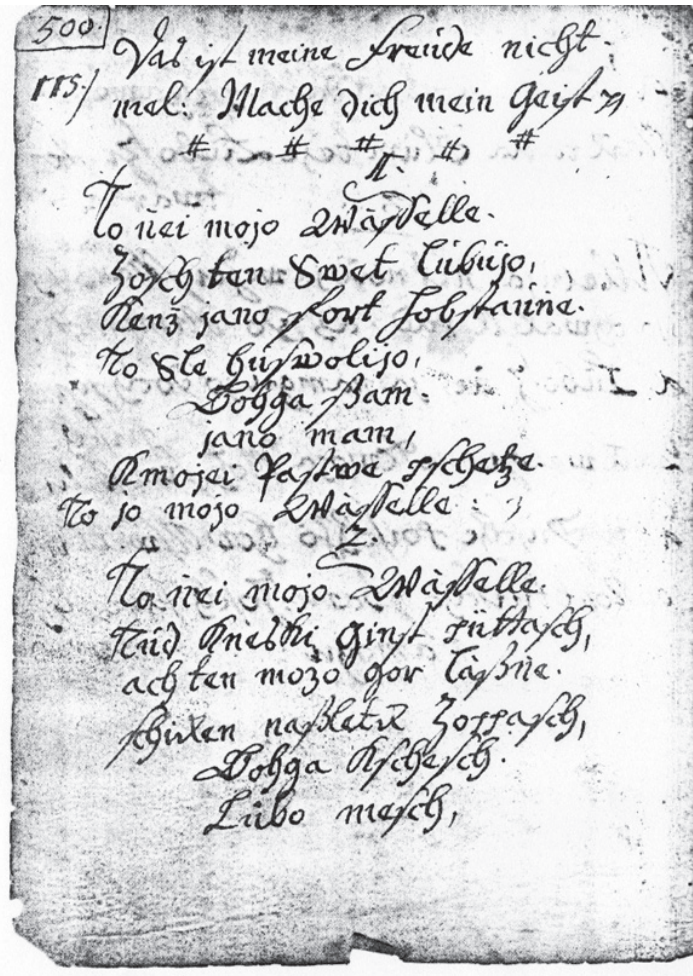 500.
Das ist meine Freude nicht.
115/ mel: Mache dich mein Geist
# # # # #
1.
To nei mojo Wässelle.
Zosch ten Swet lubujo,
Kenz jano fort hobstanne.
to Sle huswolijo,
Bohga ßam.
jano mam,
Kmojei Pastwe pschetze.
To jo mojo Wässelle.
2.
To nei mojo Wässelle.
Kneski Ginst
ach ten mozo gor laßne.
Zoppasch,
Bohga Kschesch.
Lubo mesch,